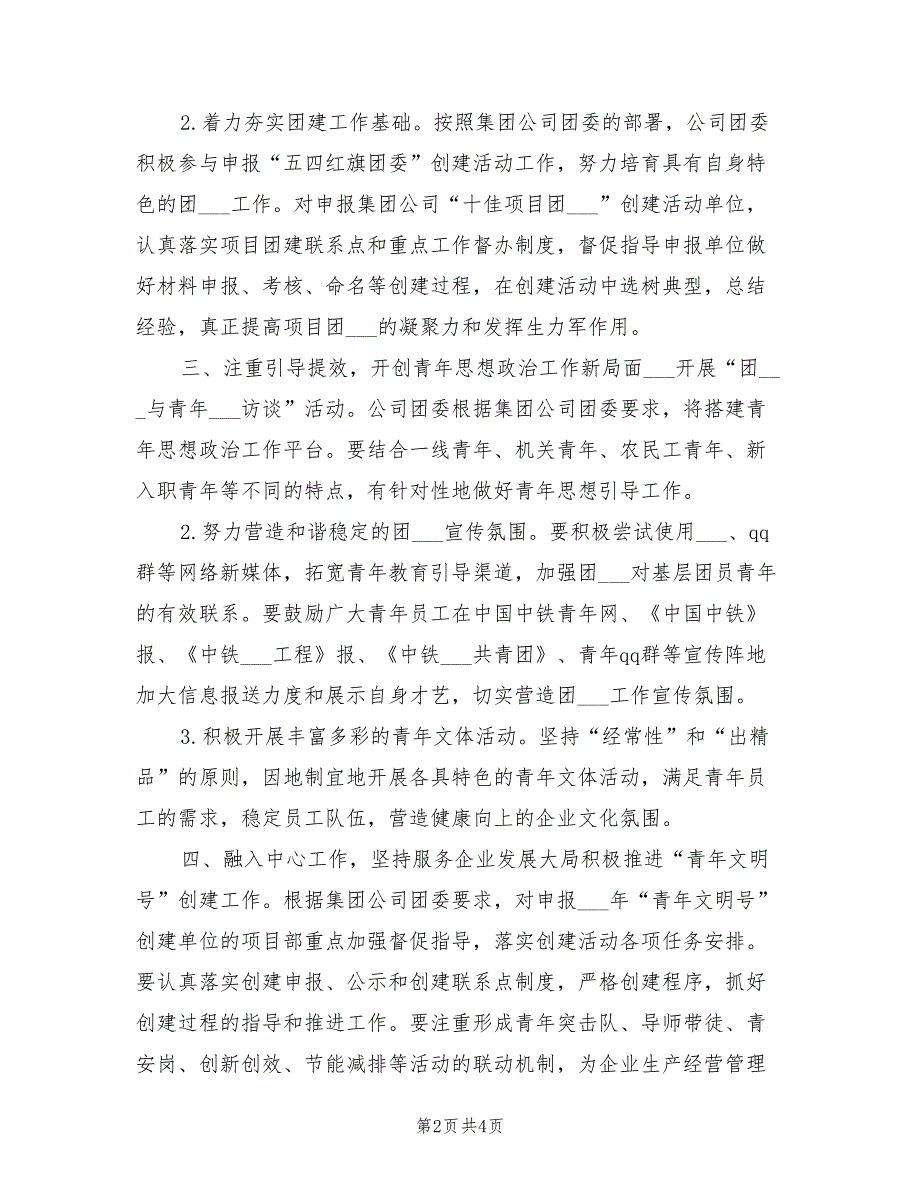 2.着力夯实团建工作基础。按照集团公司团委的部署，公司团委
积极参与申报“五四红旗团委”创建活动工作，努力培育具有自身特
色的团___工作。对申报集团公司“十佳项目团___”创建活动单位，
认真落实项目团建联系点和重点工作督办制度，督促指导申报单位做
好材料申报、考核、命名等创建过程，在创建活动中选树典型，总结
经验，真正提高项目团___的凝聚力和发挥生力军作用。
三、注重引导提效，开创青年思想政治工作新局面___开展“团__
_与青年___访谈”活动。公司团委根据集团公司团委要求，将搭建青
年思想政治工作平台。要结合一线青年、机关青年、农民工青年、新
入职青年等不同的特点，有针对性地做好青年思想引导工作。
2.努力营造和谐稳定的团___宣传氛围。要积极尝试使用___、qq
群等网络新媒体，拓宽青年教育引导渠道，加强团___对基层团员青年
的有效联系。要鼓励广大青年员工在中国中铁青年网、《中国中铁》
报、《中铁___工程》报、《中铁___共青团》、青年qq群等宣传阵地
加大信息报送力度和展示自身才艺，切实营造团___工作宣传氛围。
3.积极开展丰富多彩的青年文体活动。坚持“经常性”和“出精
品”的原则，因地制宜地开展各具特色的青年文体活动，满足青年员
工的需求，稳定员工队伍，营造健康向上的企业文化氛围。
四、融入中心工作，坚持服务企业发展大局积极推进“青年文明
号”创建工作。根据集团公司团委要求，对申报___年“青年文明号”
创建单位的项目部重点加强督促指导，落实创建活动各项任务安排。
要认真落实创建申报、公示和创建联系点制度，严格创建程序，抓好
创建过程的指导和推进工作。要注重形成青年突击队、导师带徒、青
安岗、创新创效、节能减排等活动的联动机制，为企业生产经营管理
第2页共4页